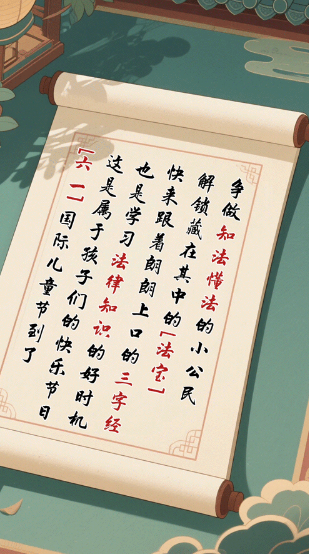 [六一]国际儿童节到了
这是属于孩子们的快乐节日
也是学习法律知识的好时机
快来跟着朗朗上口的三字经
解锁藏在其中的[法宝]
争做知法懂法的小公民